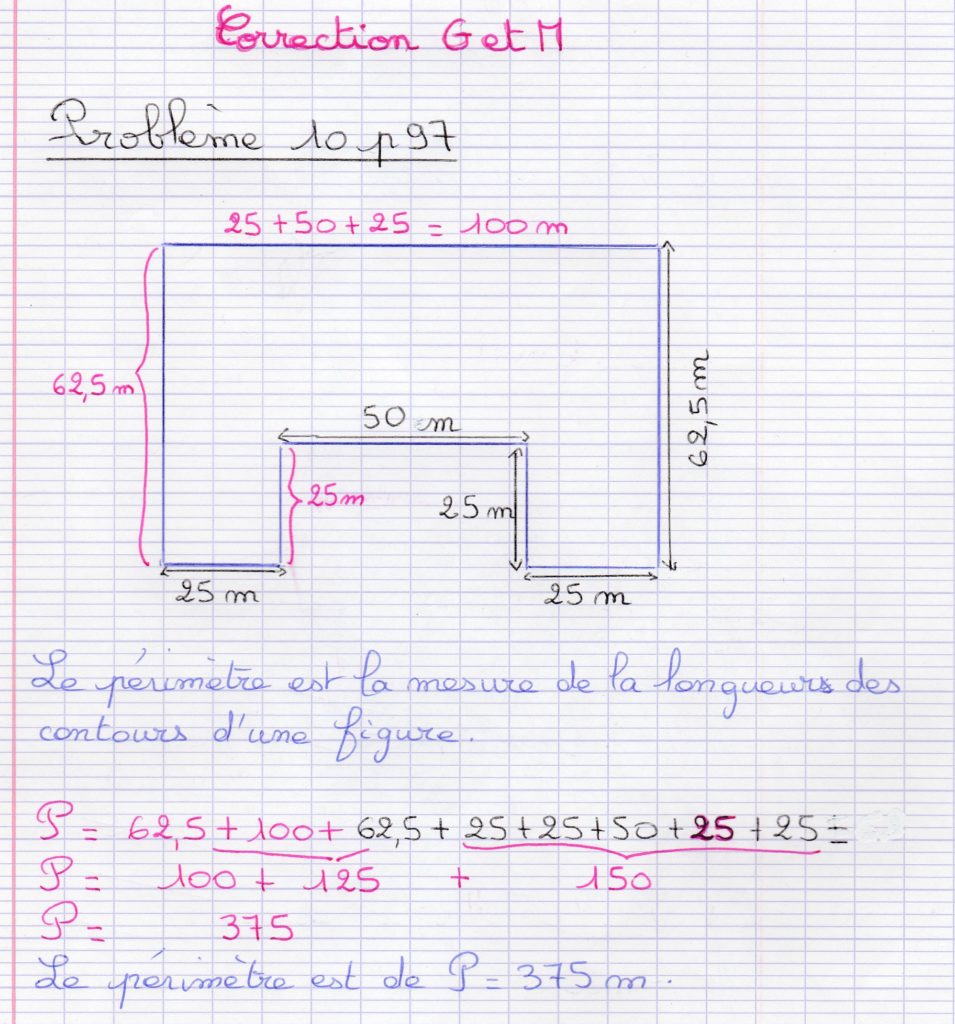 Correction G et M
Problème 10 p 97
25 + 50 + 25 = 100 m
62,5 m
50 m
62,5 m
25 m
25 m
25 m
25 m
Le périmètre est la mesure de la longueurs des
contours d'une figure.
P = 62,5 + 100 + 62,5 + 25 + 25 + 50 + 25 + 25 =
P = 100 + 125 + 150
P = 375
Le périmètre est de P = 375 m.